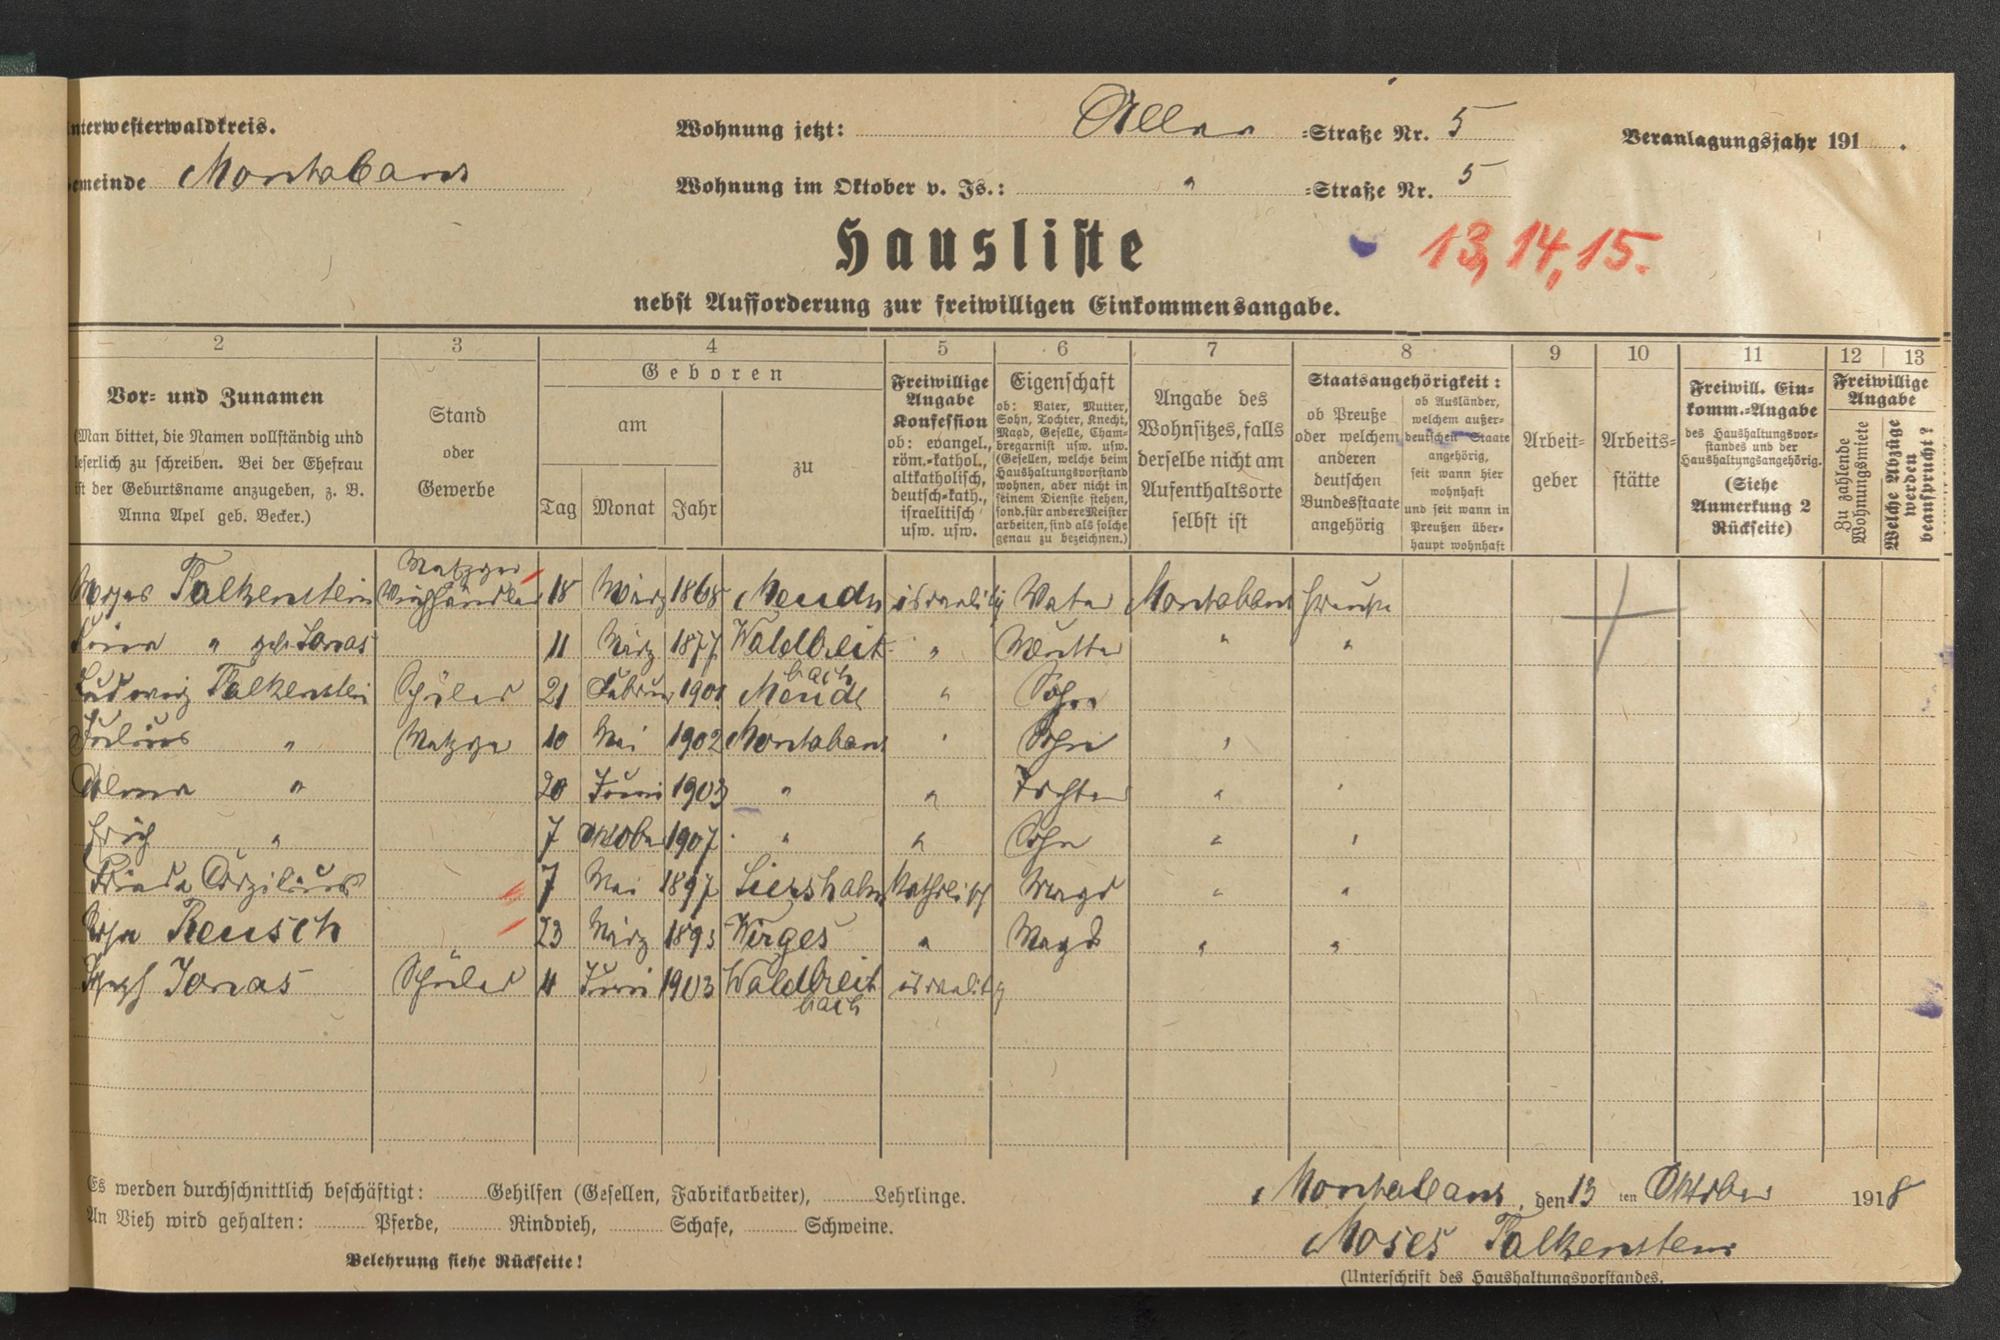 nterwesterwaldkreis.
Wohnung jetzt: Allee =Straße Nr. 5
Veranlagungsjahr 191 .
emeinde Montabaur
Wohnung im Oktober v. Js.: " =Straße Nr. 5
Hausliste
13, 14, 15.
nebst Aufforderung zur freiwilligen Einkommensangabe.
2 3 4 5 6 7 8 9 10 11 12 13
Vor- und Zunamen
(Man bittet, die Namen vollständig und
leserlich zu schreiben. Bei der Ehefrau
ist der Geburtsname anzugeben, z. B.
Anna Apel geb. Becker.)
Stand
oder
Gewerbe
Geboren
am
Tag Monat Jahr
zu
Freiwillige
Angabe
Konfession
ob: evangel.,
röm.-kathol.,
altkatholisch,
deutsch-kath.,
israelitisch
usw. usw.
Eigenschaft
ob: Vater, Mutter,
Sohn, Tochter, Knecht,
Magd, Geselle, Cham-
bregarnist usw. usw.
(Gesellen, welche beim
Haushaltungsvorstand
wohnen, aber nicht in
seinem Dienste stehen,
sond. für andere Meister
arbeiten, sind als solche
genau zu bezeichnen.)
Angabe des
Wohnsitzes, falls
derselbe nicht am
Aufenthaltsorte
selbst ist
Staatsangehörigkeit:
ob Preuße
oder welchem
anderen
deutschen
Bundesstaate
angehörig
ob Ausländer,
welchem außer-
deutschen Staate
angehörig,
seit wann hier
wohnhaft
und seit wann in
Preußen über-
haupt wohnhaft
Arbeit-
geber
Arbeits-
stätte
Freiwill. Ein-
komm.-Angabe
des Haushaltungsvor-
standes und der
Haushaltungsangehörig.
(Siehe
Anmerkung 2
Rückseite)
Freiwillige
Angabe
Zu zahlende
Wohnungsmiete
Welche Abzüge
werden
beansprucht?
Metzger
Moses Falkenstein Viehhändler 18 März 1868 Meudt israelitisch Vater Montabaur Preuße
" geb. Jonas 11 März 1877 Waldbreit- " Mutter " "
bach
Ludwig Falkenstein Schüler 21 Februar 1901 Meudt " Sohn
Julius " Metzger 10 Mai 1902 Montabaur " Sohn "
Alma " 20 Juni 1903 " " Tochter " "
Erich " 7 Oktober 1907 " " Sohn " "
Frieda Corzilius 7 Mai 1897 Siershahn Katholisch Magd " "
Reusch 23 März 1893 Wirges " Magd " "
Joseph Jonas Schüler 4 Juni 1903 Waldbreit israelitisch
bach
Es werden durchschnittlich beschäftigt: Gehilfen (Gesellen, Fabrikarbeiter), Lehrlinge.
An Vieh wird gehalten: Pferde, Rindvieh, Schafe, Schweine.
Belehrung siehe Rückseite!
Montabaur, den 13 ten Oktober 1918
Moses Falkenstein
(Unterschrift des Haushaltungsvorstandes.